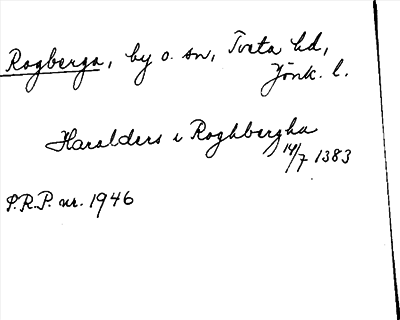 Rogberga, by o. sn, Tveta hd,
Jönk. l.
Haralders i Roghbergha
14/7 1383
S.R.P. nr. 1946